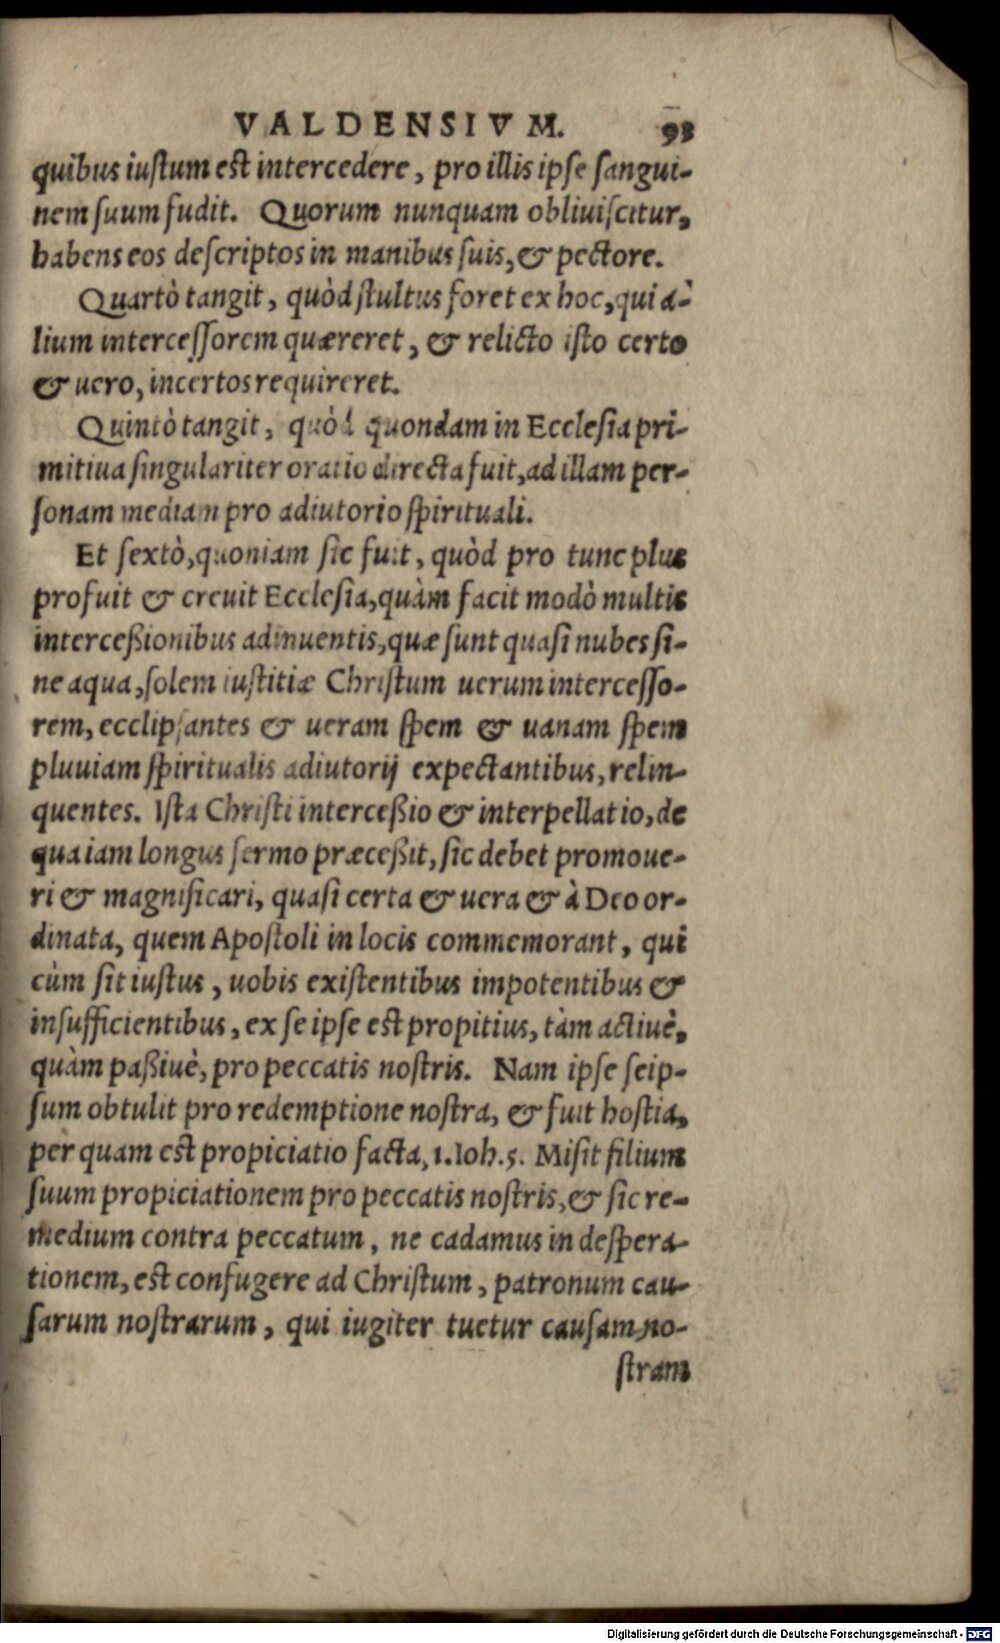 VALDENSIVM. 93
quibus iustum est intercedere, pro illis ipse sangui-
nem suum fudit. Quorum nunquam obliuiscitur,
habens eos descriptos in manibus suis, & pectore.
Quartò tangit, quòd stultus foret ex hoc, qui a-
lium intercessorem quæreret, & relicto isto certo
& uero, incertos requireret.
Quintò tangit, quòd quondam in Ecclesia pri-
mitiua singulariter oratio directa fuit, ad illam per-
sonam mediam pro adiutorio spirituali.
Et sextò, quoniam sic fuit, quòd pro tunc plus
profuit & creuit Ecclesia, quàm facit modò multis
interceßionibus adinuentis, quæ sunt quasi nubes si-
ne aqua, solem iustitiæ Christum uerum intercesso-
rem, ecclipsantes & ueram spem & uanam spem
pluuiam spiritualis adiutorij expectantibus, relin-
quentes. Ista Christi interceßio & interpellatio, de
qua iam longus sermo præceßit, sic debet promoue-
ri & magnificari, quasi certa & uera & à Deo or-
dinata, quem Apostoli in locis commemorant, qui
cùm sit iustus, uobis existentibus impotentibus &
insufficientibus, ex se ipse est propitius, tàm actiuè,
quàm paßiuè, pro peccatis nostris. Nam ipse seip-
sum obtulit pro redemptione nostra, & fuit hostia,
per quam est propiciatio facta, 1. Ioh. 5. Misit filium
suum propiciationem pro peccatis nostris, & sic re-
medium contra peccatum, ne cadamus in despera-
tionem, est confugere ad Christum, patronum cau-
sarum nostrarum, qui iugiter tuetur causam no-
stram
Digitalisierung gefördert durch die Deutsche Forschungsgemeinschaft - DFG